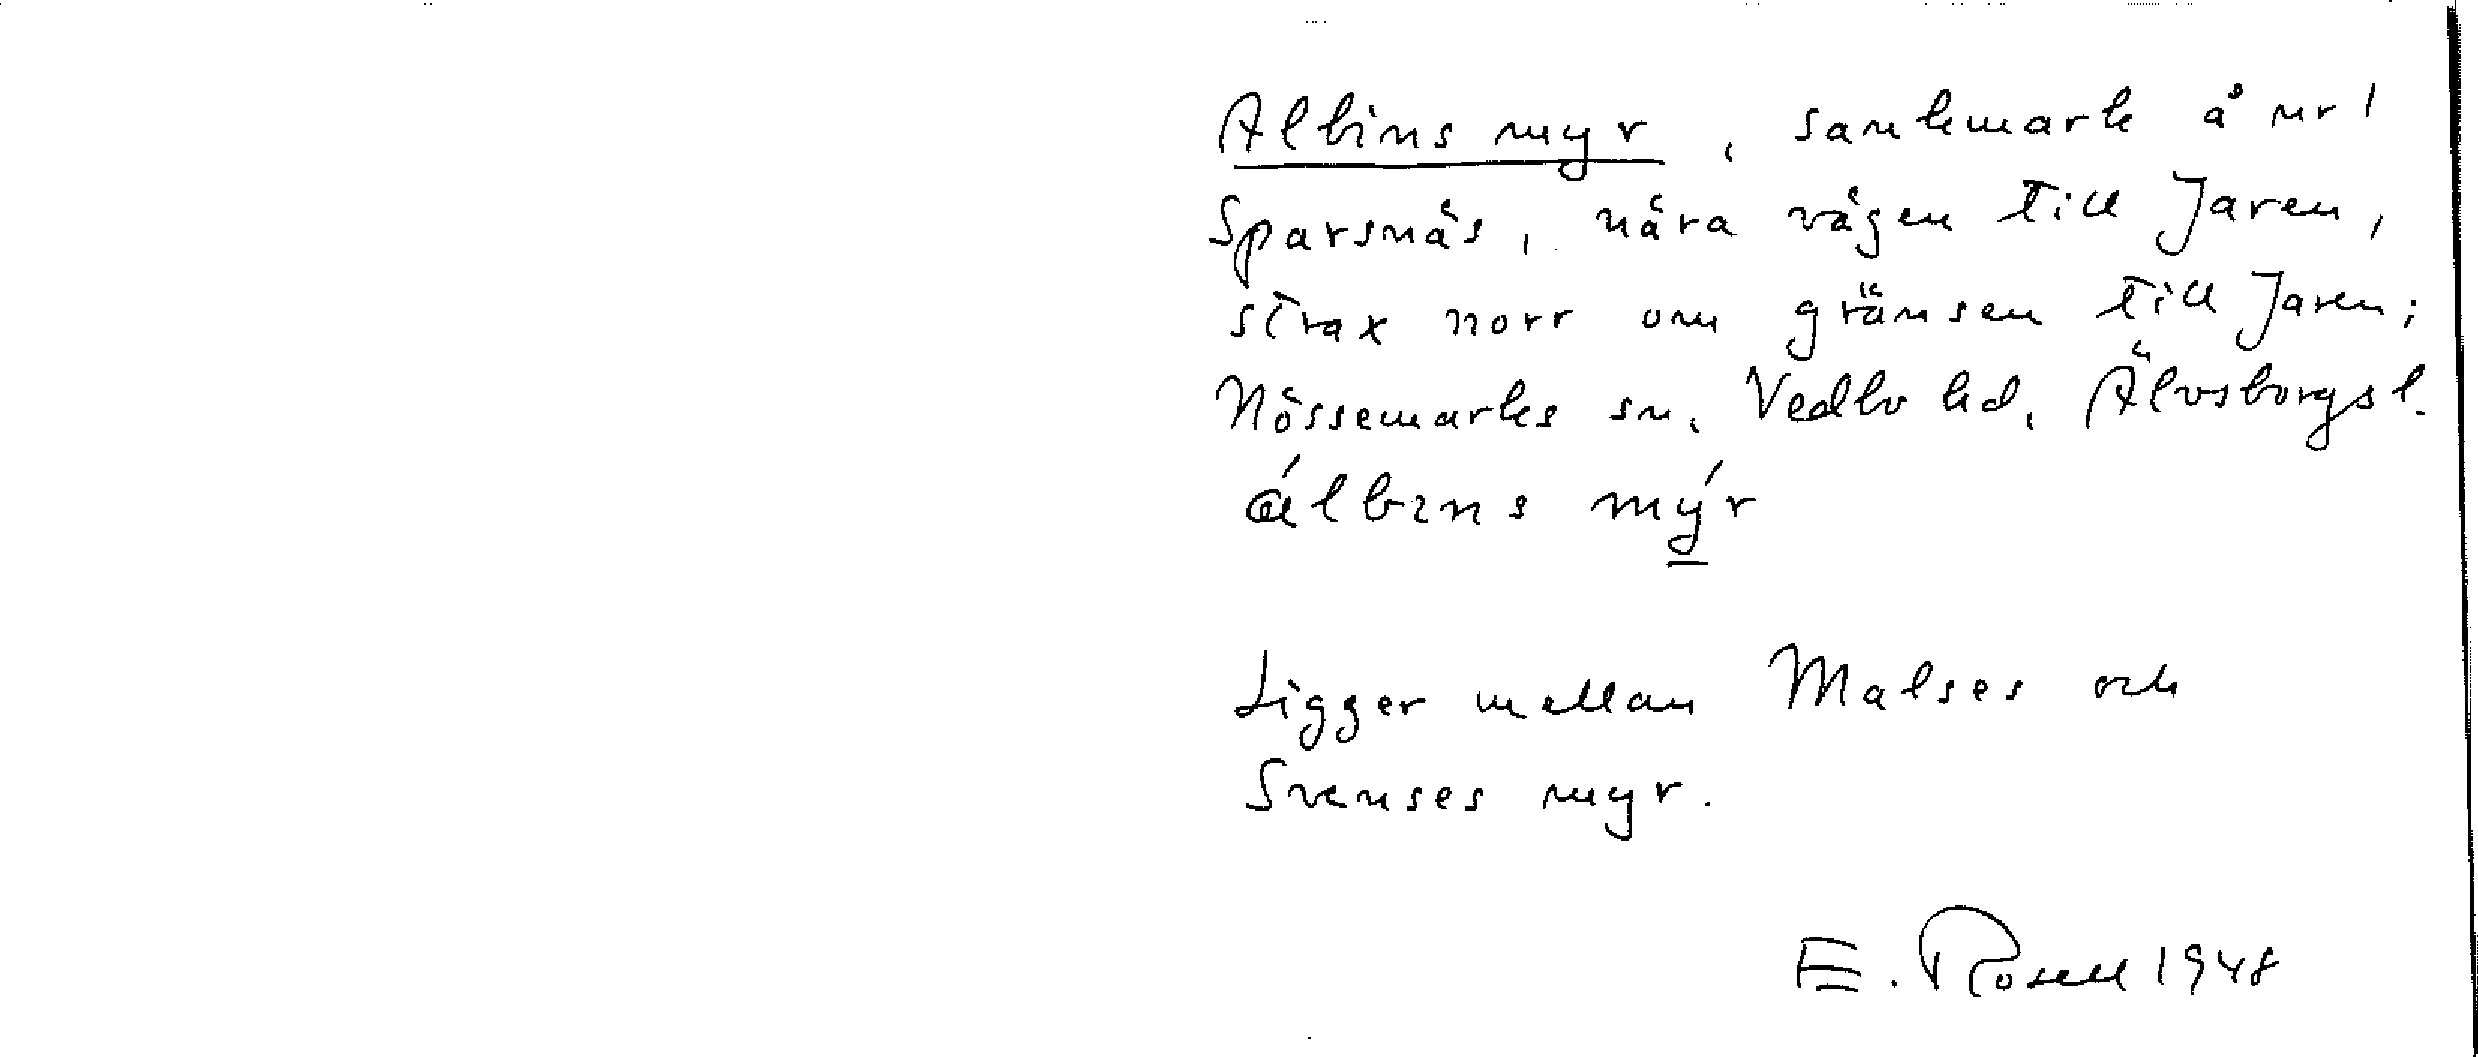 Albins myr, sankmark å nr 1
Sparsnäs, nära vägen till Jaren,
strax norr om gränsen till Jaren;
Nössemarks sn, Vedbo hd, Älvsborgs l.
álbɩns mýr
Ligger mellan Malses och
Svenses myr.
E. Rosell 1948